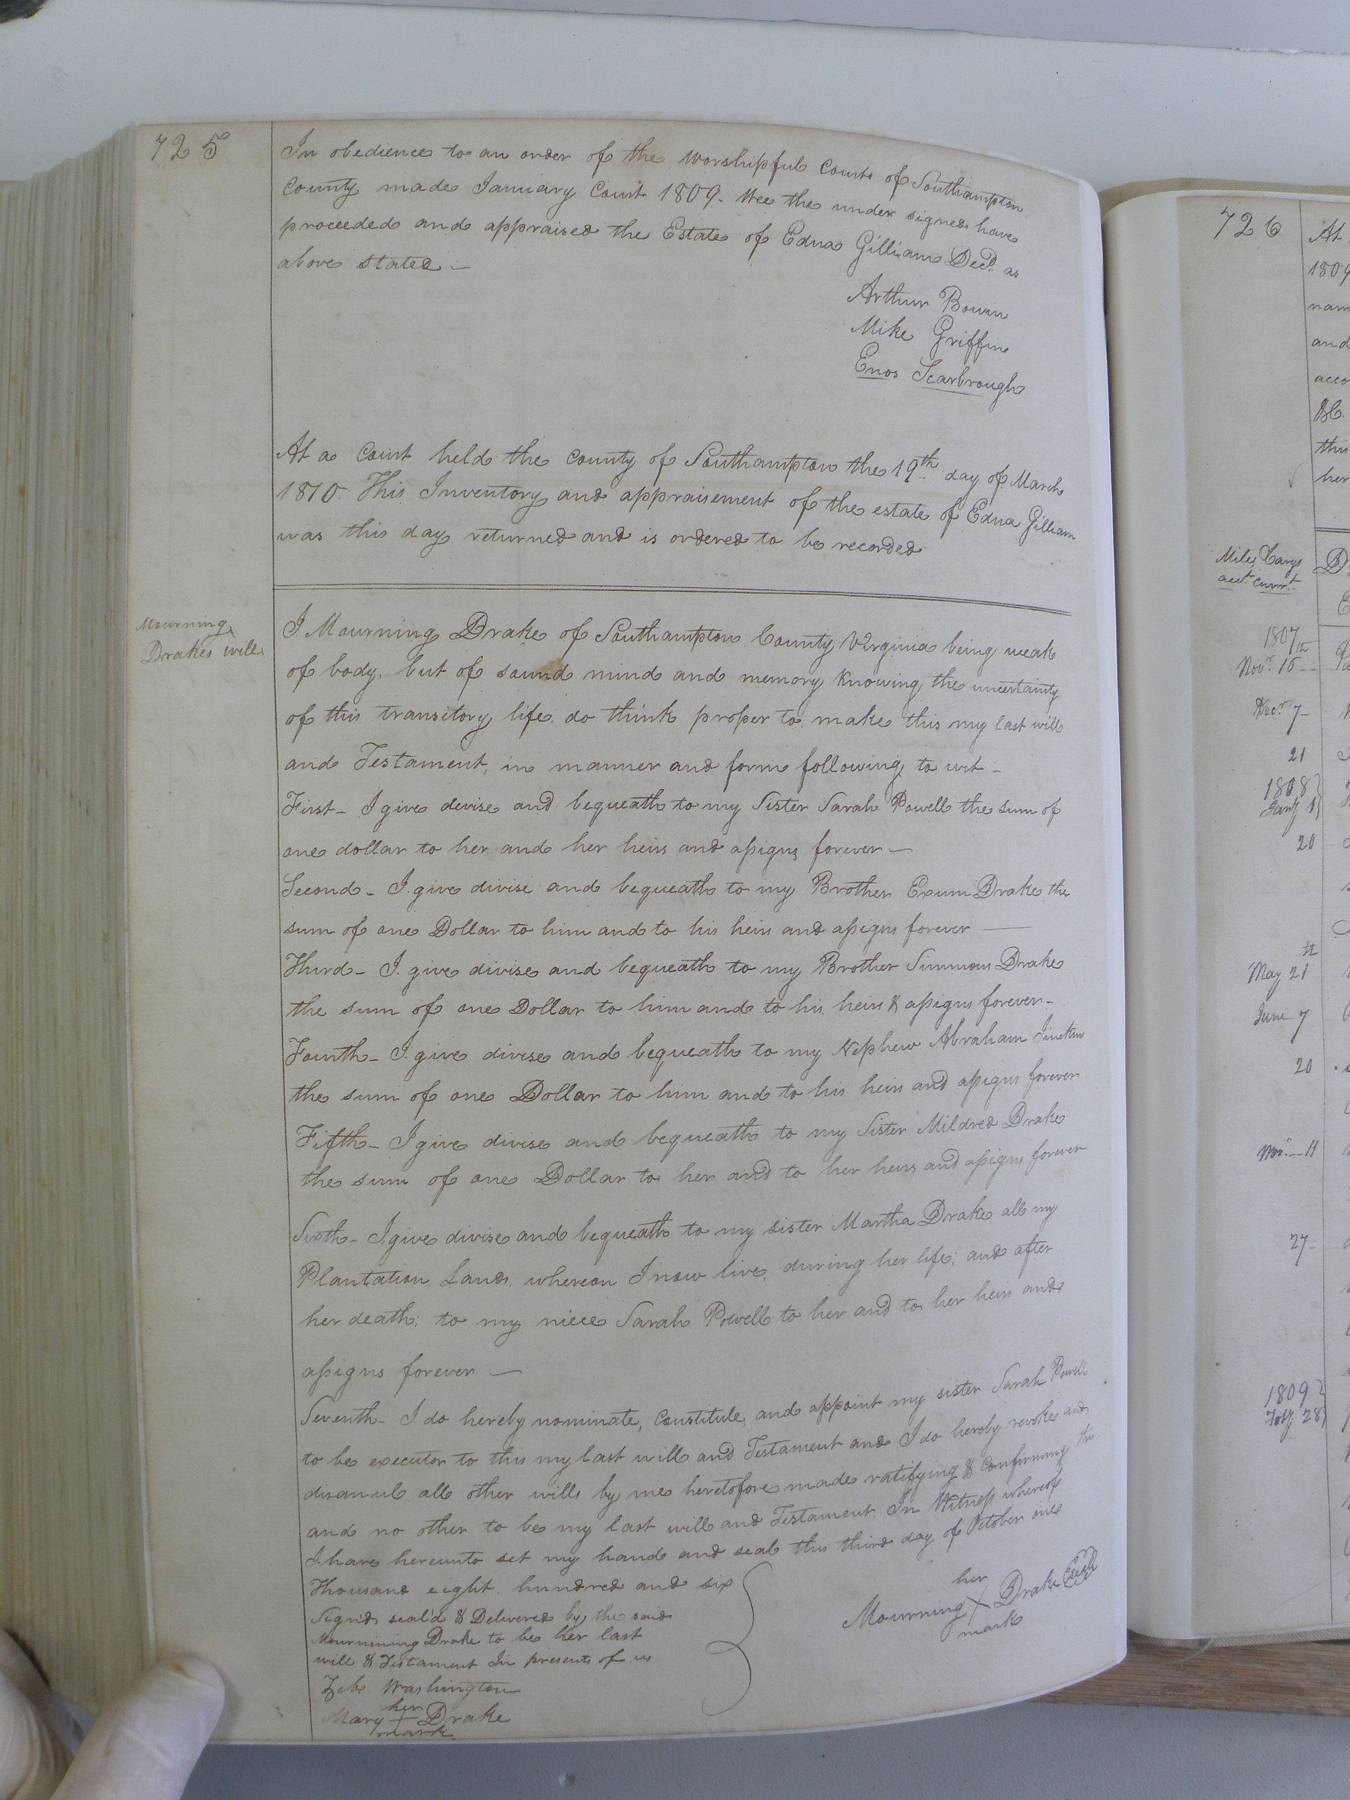 725
In obedience to an order of the worshipful court of Southampton
county made January Court 1809. Wee the under signed have
proceeded and appraised the Estate of Edna Gilliam Decd. as
above stated —
Arthur Bowin
Mike Griffin
Enos Scarbrough
At a Court held the county of Southampton the 19th day of March
1810. This Inventory and appraisement of the estate of Edna Gilliam
was this day returned and is ordered to be recorded
Mourning
Drakes will
I Mourning Drake of Southampton County Virginia being weak
of body, but of sound mind and memory knowing the uncertainty
of this transitory life do think proper to make this my last will
and Testament, in manner and form following to wit —
First — I give devise and bequeath to my Sister Sarah Powell the sum of
one dollar to her and her heirs and assigns forever —
Second — I give divise and bequeath to my Brother Exum Drake the
sum of one Dollar to him and to his heirs and assigns forever —
Third — I give divise and bequeath to my Brother Simmons Drake
the sum of one Dollar to him and to his heirs & assigns forever —
Fourth — I give divise and bequeath to my Nephew Abraham
the sum of one Dollar to him and to his heirs and assigns forever
Fifth — I give divise and bequeath to my Sister Mildred Drake
the sum of one Dollar to her and to her heirs and assigns forever
Sixth — I give divise and bequeath to my sister Martha Drake all my
Plantation Lands whereon I now live, during her life; and after
her death; to my niece Sarah Powell to her and to her heirs and
assigns forever —
Seventh — I do hereby nominate, constitute, and appoint my sister Sarah Powell
to be executor to this my last will and Testament and I do hereby revoke and
disanul all other wills by me heretofore made ratifying & confirming this
and no other to be my last will and Testament. In Witness whereof
I have hereunto set my hand and seal this third day of October one
Thousand eight hundred and six
Signd, seal'd & Delivered by the said
Mourning Drake to be her last
will & Testament In presents of us
Zebe Washington
her
Mary + Drake
mark
her
Mourning X Drake Seal
mark
726
At
1809
nam
and
acco
this
her
Miles Carys
acct. Currt.
1807
Novr. 15
Decr. 7
21
1808
Jany 1
20
May 21
June 7
20
Novr. 11
27
1809
Feby 28